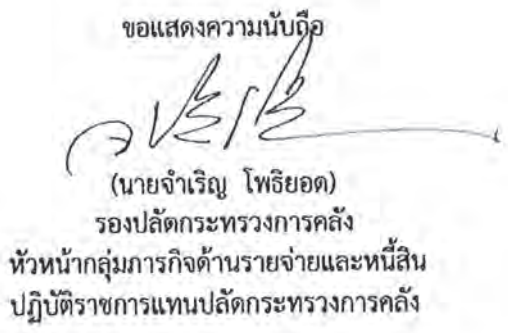 ขอแสดงความนับถือ
(นายจำเริญ โพธิยอด)
รองปลัดกระทรวงการคลัง
หัวหน้ากลุ่มภารกิจด้านรายจ่ายและหนี้สิน
ปฏิบัติราชการแทนปลัดกระทรวงการคลัง